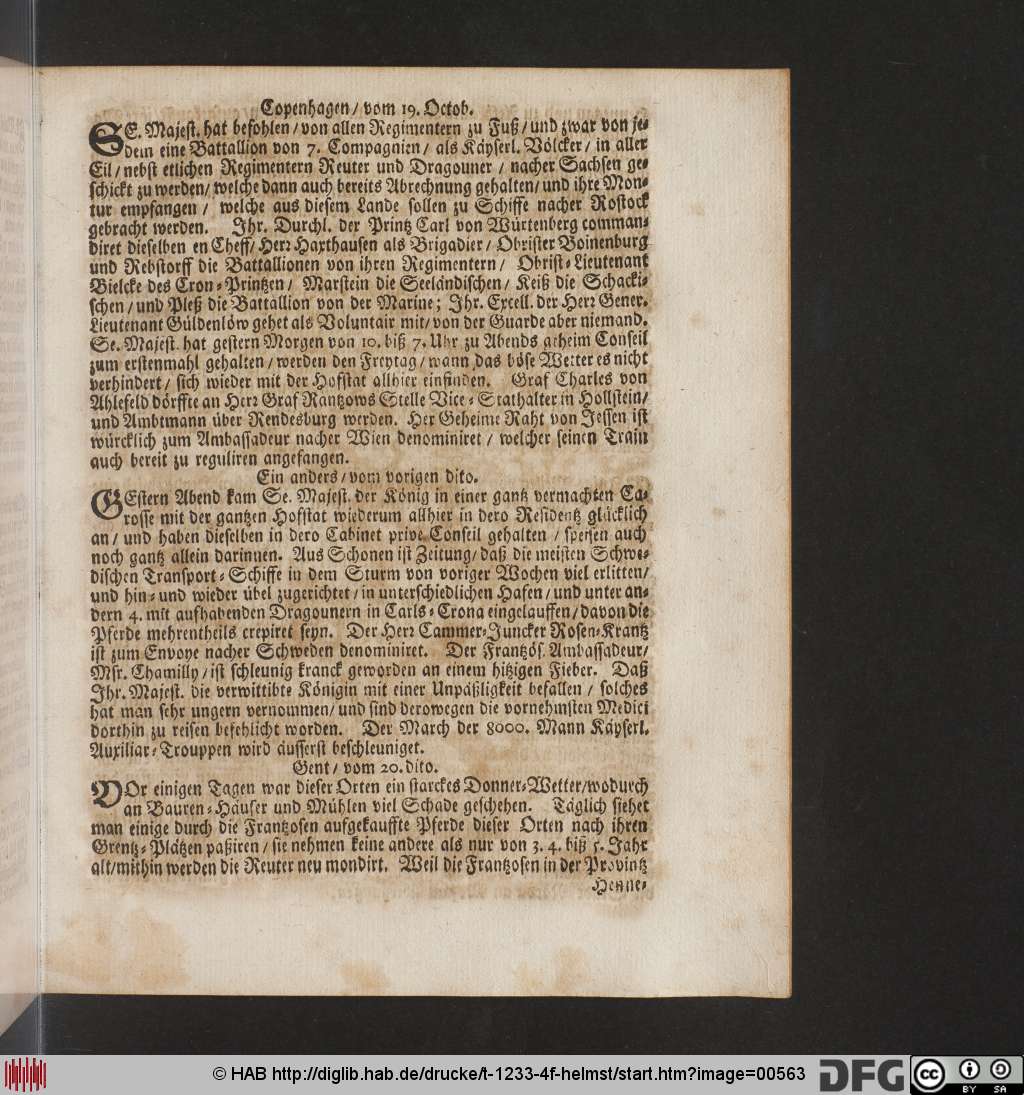 Copenhagen / vom 19. Octob.
SE. Majest. hat befohlen / von allen Regimentern zu Fuß / und zwar von je-
dem eine Battallion von 7. Compagnien / als Käyserl. Völcker / in aller
Eil / nebst etlichen Regimentern Reuter und Dragouner / nacher Sachsen ge-
schickt zu werden / welche dann auch bereits Abrechnung gehalten / und ihre Mon-
tur empfangen / welche aus diesem Lande sollen zu Schiffe nacher Rostock
gebracht werden. Ihr. Durchl. der Printz Carl von Würtenberg comman-
diret dieselben en Cheff / Herr Haxthausen als Brigadier / Obrister Boinenburg
und Rebstorff die Battallionen von ihren Regimentern / Obrist-Lieutenant
Bielcke des Cron-Printzen / Marstein die Seeländischen / Keiß die Schacki-
schen / und Pleß die Battallion von der Marine; Ihr. Excell. der Herr Gener.
Lieutenant Güldenlöw gehet als Voluntair mit / von der Guarde aber niemand.
Se. Majest. hat gestern Morgen von 10. biß 7. Uhr zu Abends geheim Conseil
zum erstenmahl gehalten / werden den Freytag / wann das böse Wetter es nicht
verhindert / sich wieder mit der Hofstat allhier einfinden. Graf Charles von
Ahlefeld dörffte an Herr Graf Rantzows Stelle Vice-Stathalter in Hollstein /
und Ambtmann über Rendesburg werden. Her Geheime Raht von Jessen ist
würcklich zum Ambassadeur nacher Wien denominiret / welcher seinen Train
auch bereit zu reguliren angefangen.
Ein anders / vom vorigen dito.
GEstern Abend kam Se. Majest. der König in einer gantz vermachten Ca-
rosse mit der gantzen Hofstat wiederum allhier in dero Residentz glücklich
an / und haben dieselben in dero Cabinet prive Conseil gehalten / speisen auch
noch gantz allein darinnen. Aus Schonen ist Zeitung / daß die meisten Schwe-
dischen Transport-Schiffe in dem Sturm von voriger Wochen viel erlitten /
und hin- und wieder übel zugerichtet / in unterschiedlichen Hafen / und unter an-
dern 4. mit aufhabenden Dragounern in Carls-Crona eingelauffen / davon die
Pferde mehrentheils crepiret seyn. Der Herr Cammer-Juncker Rosen-Krantz
ist zum Envoye nacher Schweden denominiret. Der Frantzös. Ambassadeur /
Msr. Chamilly / ist schleunig kranck geworden an einem hitzigen Fieber. Daß
Ihr. Majest. die verwittibte Königin mit einer Unpäßligkeit befallen / solches
hat man sehr ungern vernommen / und sind derowegen die vornehmsten Medici
dorthin zu reisen befehlicht worden. Der March der 8000. Mann Käyserl.
Auxiliar-Trouppen wird äusserst beschleuniget.
Gent / vom 20. dito.
VOr einigen Tagen war dieser Orten ein starckes Donner-Wetter / wodurch
an Bauren-Häuser und Mühlen viel Schade geschehen. Täglich siehet
man einige durch die Frantzosen aufgekauffte Pferde dieser Orten nach ihren
Grentz-Plätzen paßiren / sie nehmen keine andere als nur von 3. 4. biß 5. Jahr
alt / mithin werden die Reuter neu mondirt. Weil die Frantzosen in der Provintz
Henne-
© HAB http://diglib.hab.de/drucke/t-1233-4f-helmst/start.htm?image=00563
DFG
cc BY SA